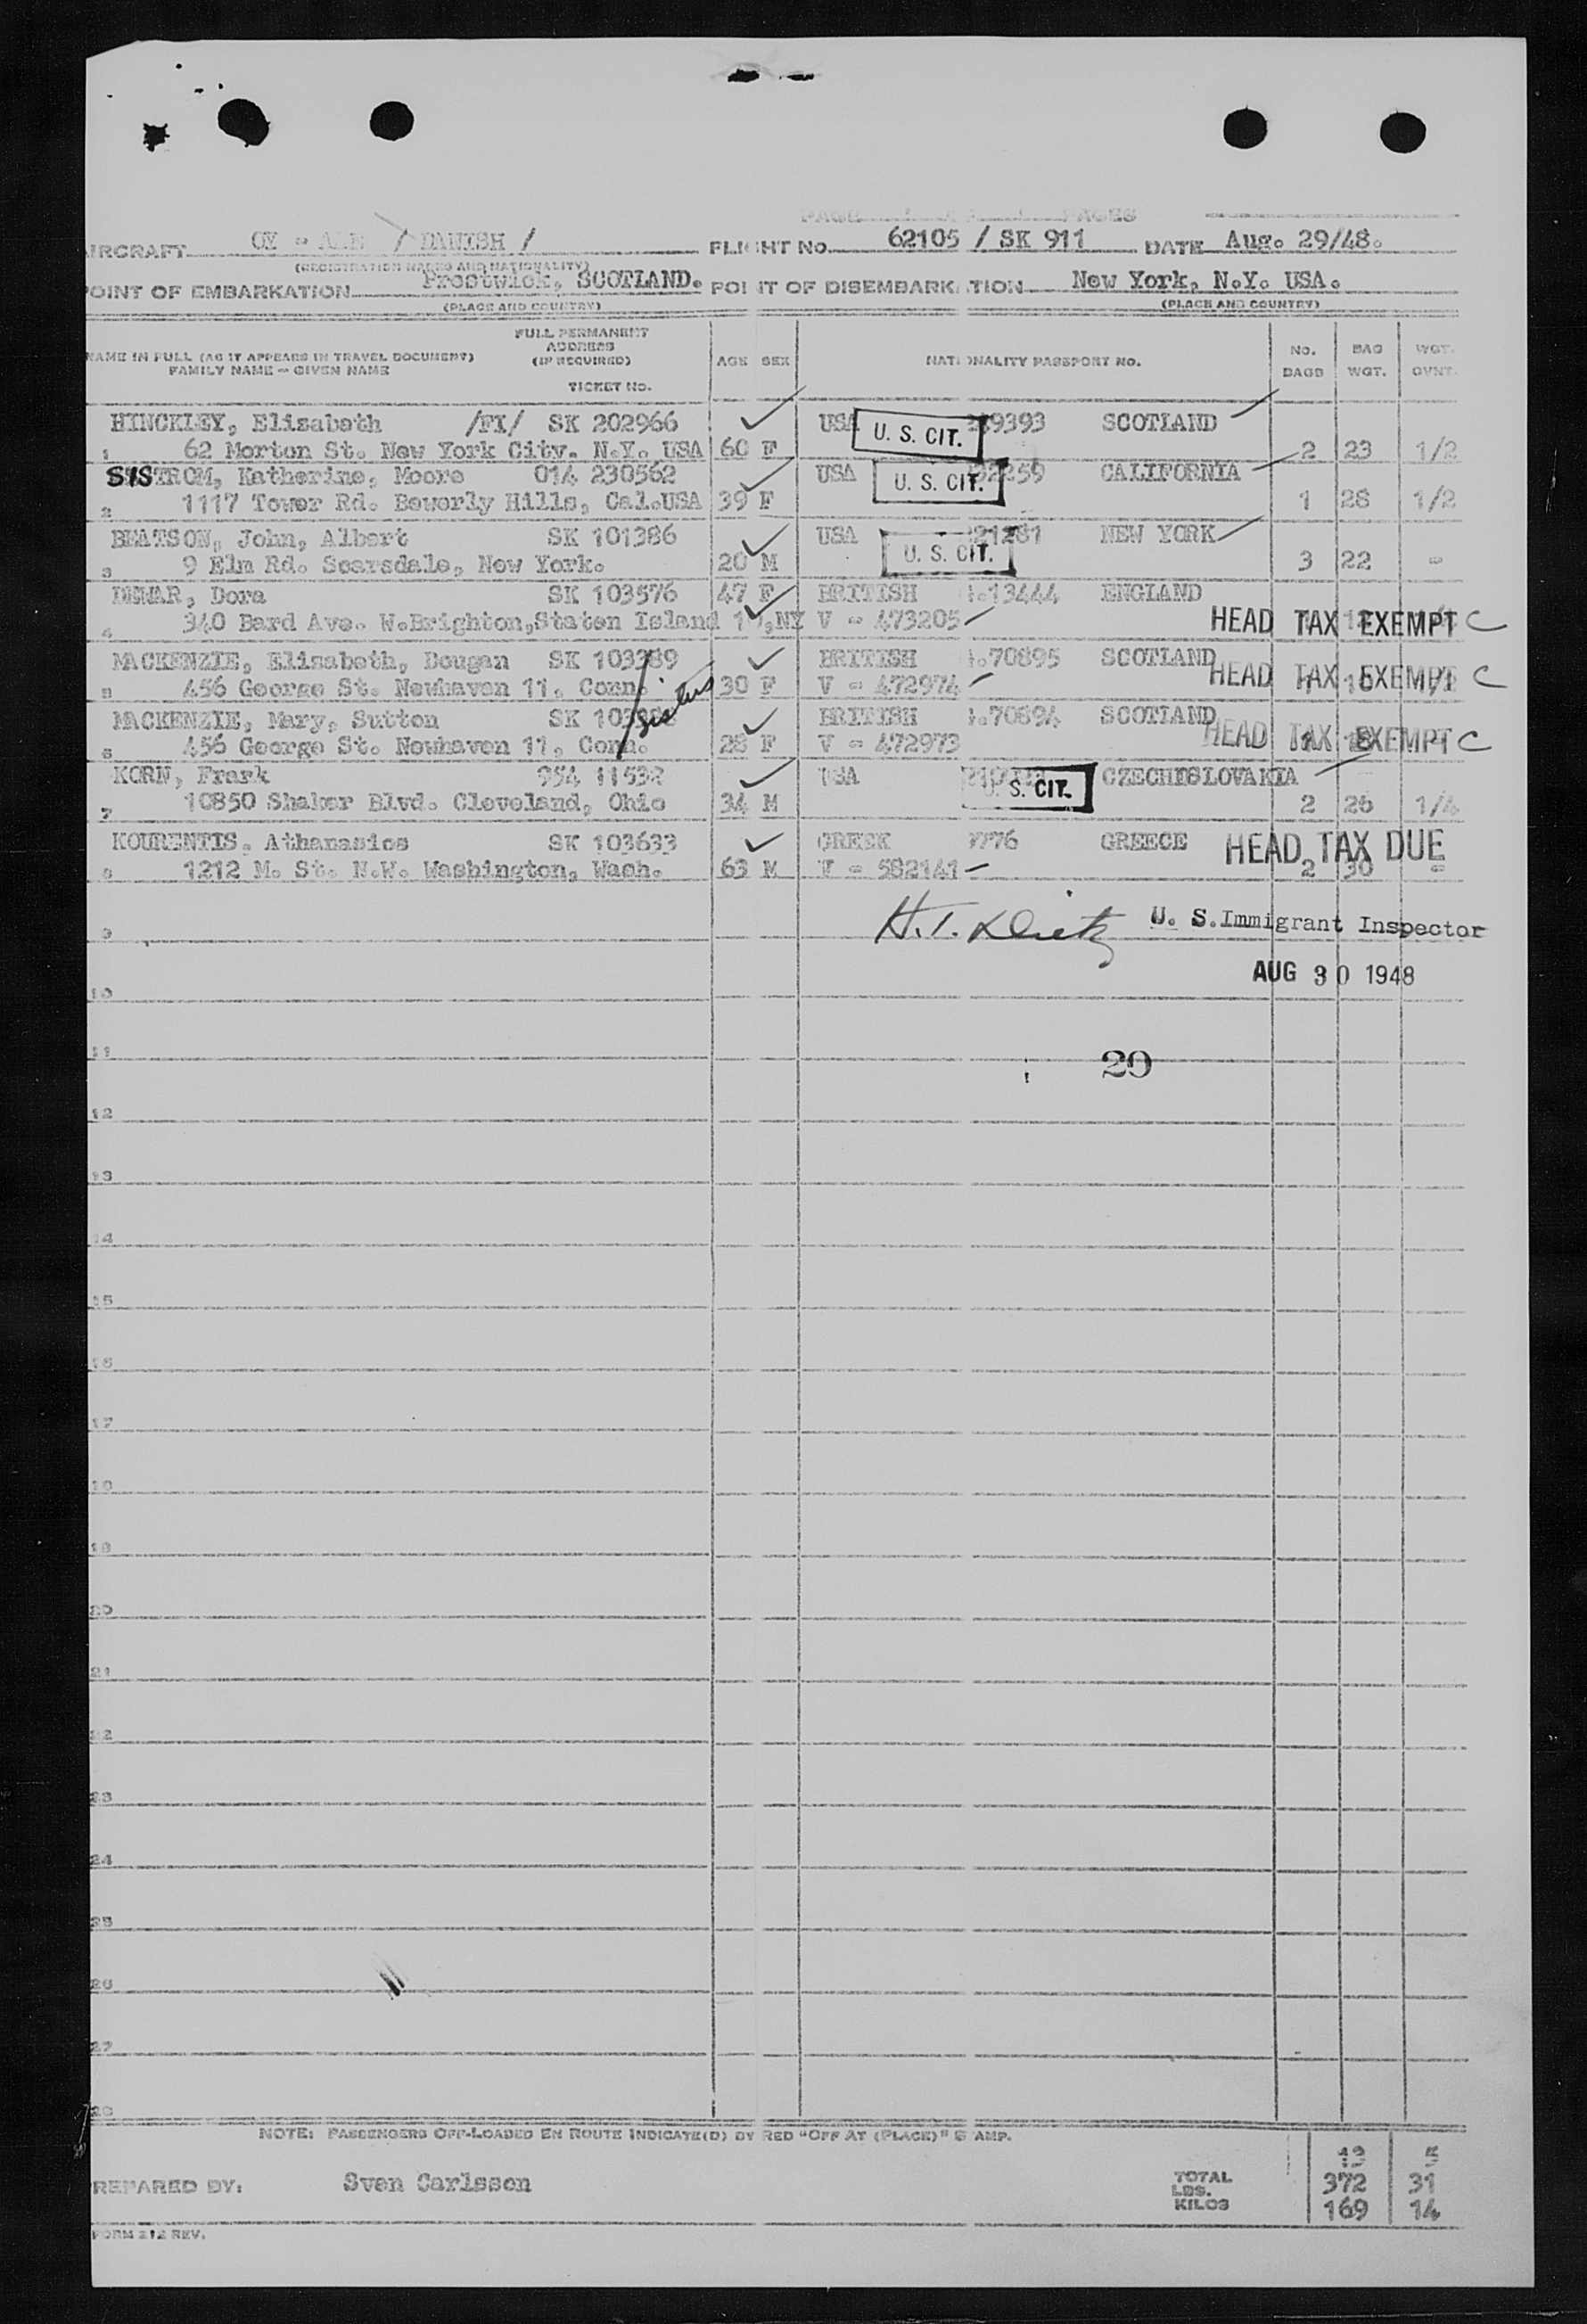 PAGE PAGES
AIRCRAFT / DANISH / FLIGHT No. 62105 / SK 911 DATE Aug. 29/48.
(REGISTRATION MARKS AND NATIONALITY)
POINT OF EMBARKATION Prestwick, SCOTLAND. POINT OF DISEMBARKATION New York, N.Y. USA.
(PLACE AND COUNTRY) (PLACE AND COUNTRY)
NAME IN FULL (AS IT APPEARS IN TRAVEL DOCUMENT) FAMILY NAME — GIVEN NAME FULL PERMANENT ADDRESS (IF REQUIRED) TICKET No. AGE SEX NATIONALITY PASSPORT NO. No. BAGS BAG WGT. WGT. OVNT.
HINCKLEY, Elizabeth /FI/ SK 202966 USA U. S. CIT. 9393 SCOTLAND
1 62 Morton St. New York City. N.Y. USA 60 F 2 23 1/2
SISTROM, Katherine, Moore 014 230562 USA U. S. CIT. 2259 CALIFORNIA
2 1117 Tower Rd. Beverly Hills, Cal.USA 39 F 1 28 1/2
BEATSON, John, Albert SK 101386 USA U. S. CIT. NEW YORK
3 9 Elm Rd. Scarsdale, New York. 20 M 3 22 -
Dora SK 103576 47 F BRITISH 13444 ENGLAND
4 340 Bard Ave. W.Brighton,Staten Island NY V - 473205 HEAD TAX EXEMPT C
MACKENZIE, Elizabeth, Dougan SK 103389 BRITISH 70895 SCOTLAND
5 456 George St. Newhaven 11, Conn. sisters 30 F V - 472974 HEAD TAX EXEMPT C
MACKENZIE, Mary, Sutton SK BRITISH 70894 SCOTLAND
6 456 George St. Newhaven 11, Conn. 28 F V - 472973 HEAD TAX EXEMPT C
KORN, Frank 954 11532 USA U. S. CIT. CZECHOSLOVAKIA
7 10850 Shaker Blvd. Cleveland, Ohio 34 M 2 26 1/4
KOURENTIS, Athanasios SK 103633 GREEK 7776 GREECE HEAD TAX DUE
8 1212 M. St. N.W. Washington, Wash. 63 M V - 582141 2 30 -
9 H. T. Dietz U. S. Immigrant Inspector
AUG 30 1948
10
11 20
12
13
14
15
16
17
18
19
20
21
22
23
24
25
26
27
28
NOTE: PASSENGERS OFF-LOADED EN ROUTE INDICATE(D) BY RED "OFF AT (PLACE)" STAMP.
13 5
PREPARED BY: Sven Carlsson TOTAL LBS. 372 31
KILOS 169 14
FORM 212 REV.